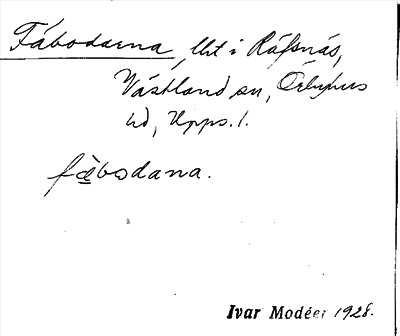 Fäbodarna, lht i Räfsnäs,
Västland sn, Örbyhus
hd, Upps. l.
fæ̀bodana.
Ivar Modéer 1928.